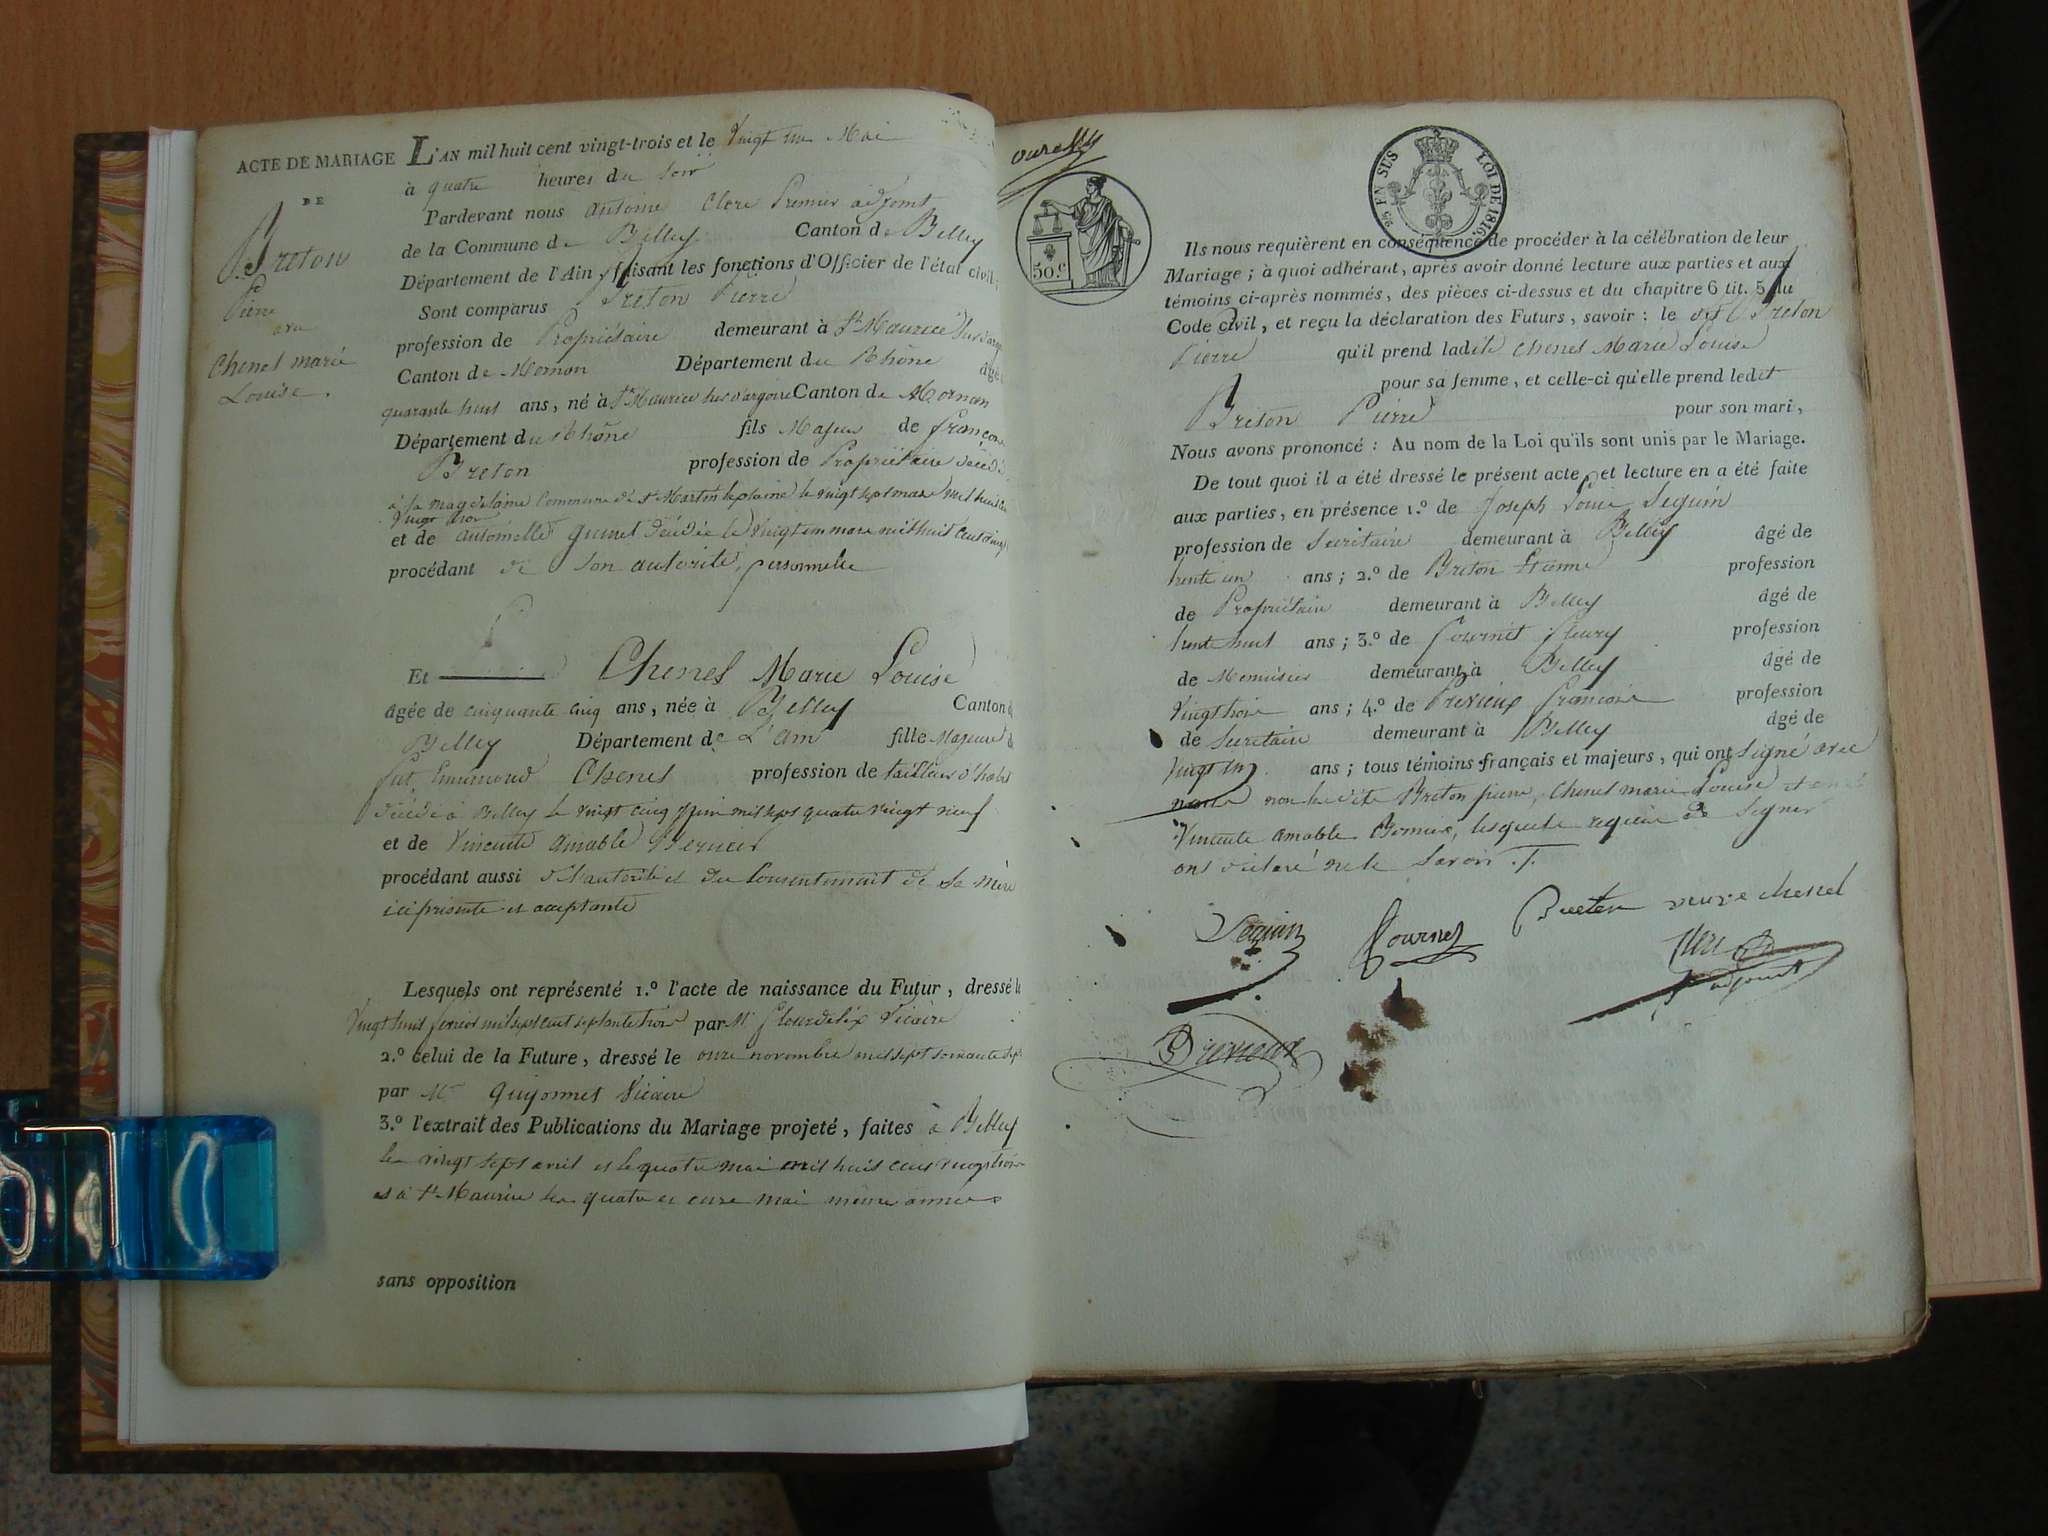 ACTE DE MARIAGE
DE
Breton
Pierre
avec
Chenel marie
Louise.
L'AN mil huit cent vingt-trois et le Vingt un Mai
à quatre heures du Soir
Pardevant nous antoine Clerc Premier adjoint
de la Commune de Belley Canton de Belley
Département de l'Ain, faisant les fonctions d'Officier de l'état civil,
Sont comparus Breton Pierre
profession de Propriétaire demeurant à St Maurice
Canton de Mornan Département du Rhône âgé
quarante huit ans, né à St Maurice sur d'argoire Canton de Mornan
Département du Rhône fils Majeur de françois
Breton profession de Propriétaire décédé
à la magdelaine Commune de St Martin le vingt sept mars mil huit
Vingt
et de antoinette décédée le Vingt un mars mil huit cent
procédant de Son autorité personnelle
Et Chenel Marie Louise
âgée de cinquante cinq ans, née à Belley Canton
Belley Département de L'ain fille Majeure
fut Emumond Chenel profession de tailleur d'habit
décédé à Belley le vingt cinq Juin mil sept quatre vingt neuf
et de Vincente amable
procédant aussi de l'autorité et du Consentement de Sa mère
ici présente et acceptante
Lesquels ont représenté 1.º l'acte de naissance du Futur, dressé le
Vingt huit fevrier mil sept cent septante trois par Mr Vicaire
2.º celui de la Future, dressé le onze novembre mil sept soixante sept
par Mr Guyonnet Vicaire
3.º l'extrait des Publications du Mariage projeté, faites à Belley
le vingt sept avril et le quatre mai mil huit cent vingt trois
et à St Maurice les quatre et onze mai même année
sans opposition
50.c
25 EN SUS LOI DE 1816.
Ils nous requièrent en conséquence de procéder à la célébration de leur
Mariage; à quoi adhérant, après avoir donné lecture aux parties et aux
témoins ci-après nommés, des pièces ci-dessus et du chapitre 6 tit. 5 du
Code civil, et reçu la déclaration des Futurs, savoir: le dit Breton
Pierre qu'il prend ladite Chenel Marie Louise
pour sa femme, et celle-ci qu'elle prend ledit
Breton Pierre pour son mari,
Nous avons prononcé: Au nom de la Loi qu'ils sont unis par le Mariage.
De tout quoi il a été dressé le présent acte, et lecture en a été faite
aux parties, en présence 1.º de Joseph Louis Seguin
profession de Secretaire demeurant à Belley âgé de
trente un ans; 2.º de Breton Etienne profession
de Propriétaire demeurant à Belley âgé de
trente huit ans; 3.º de fournet fleury profession
de Menuisier demeurant à Belley âgé de
Vingt trois ans; 4.º de Previeux françois profession
de Secretaire demeurant à Belley âgé de
Vingt un ans; tous témoins français et majeurs, qui ont signé avec
nous non lesdits Breton pierre, Chenel marie Louise et
Vincente amable lesquels requis de Signer
ont déclaré ne le Savoir.
Seguin
fournet
Breton veuve chenel
Clerc
1er adjoint
Previeux